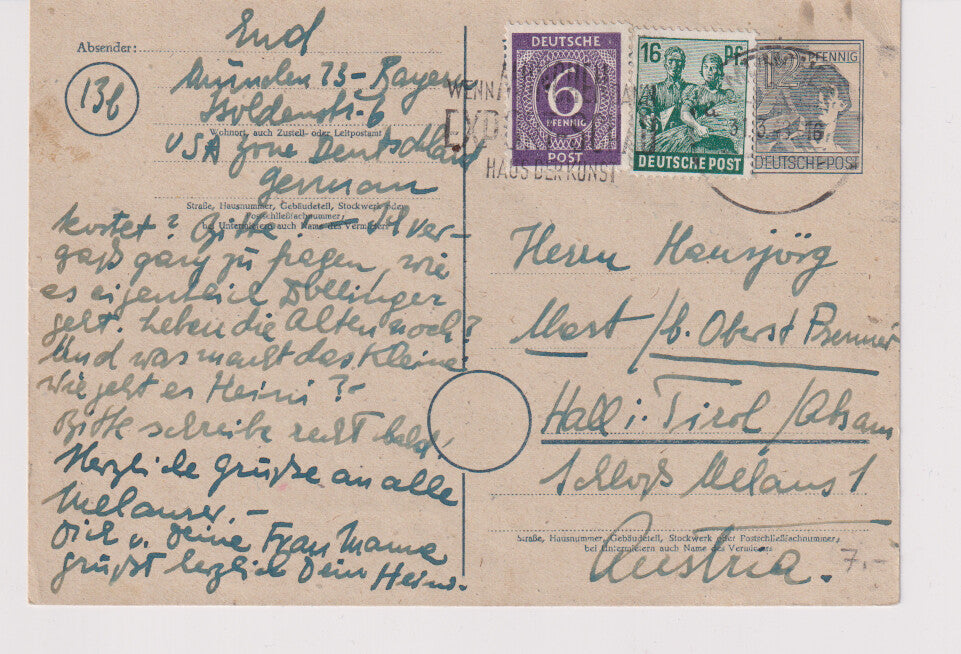 Absender: End
13b
München 13 - Bayern
Isoldenstr. 6
Wohnort, auch Zustell- oder Leitpostamt
USA Zone Deutschland
German
Straße, Hausnummer, Gebäudeteil, Stockwerk oder
Postschließfachnummer;
bei Untermietern auch Name des Vermieters
kostet? Bitte! — Ich ver-
gaß ganz zu fragen, wie
es eigentlich Dollinger
geht. Leben die Alten noch?
Und was macht das Kleine
wie geht es Heini? -
Bitte schreibe recht bald,
Herzliche Grüße an alle
Melanser. -
Dich u. Deine Frau Mama
grüßt herzlich Dein
DEUTSCHE
6
PFENNIG
POST
16 Pf
DEUTSCHE POST
12 PFENNIG
DEUTSCHE POST
WENN
HAUS DER KUNST
Herrn Hansjörg
Mast /b. Oberst
Hall i. Tirol /Absam
Schloß Melans 1
Straße, Hausnummer, Gebäudeteil, Stockwerk oder Postschließfachnummer;
bei Untermietern auch Name des Vermieters
Austria.
7.-